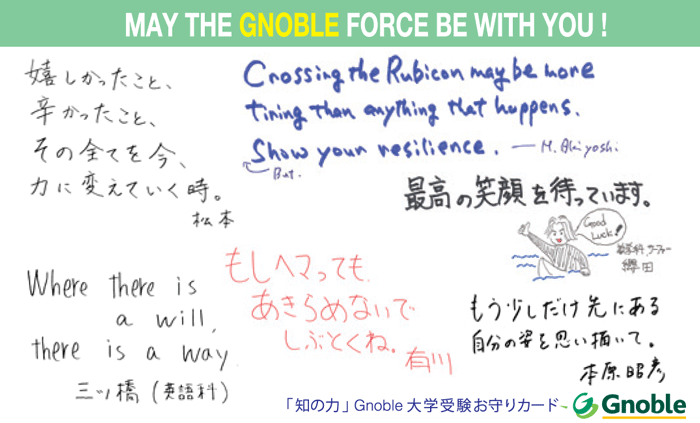 MAY THE GNOBLE FORCE BE WITH YOU !
嬉しかったこと、
辛かったこと、
その全てを今、
力に変えていく時。
松本
Crossing the Rubicon may be more
tiring than anything that happens.
Show your resilience. — M. Akiyoshi
But.
最高の笑顔を待っています。
Good
Luck!
櫻田
Where there is
a will,
there is a way
三ツ橋 (英語科)
もしヘマっても
あきらめないで
しぶとくね。有川
もう少しだけ先にある
自分の姿を思い描いて。
本原昭彦
「知の力」Gnoble 大学受験お守りカード
Gnoble